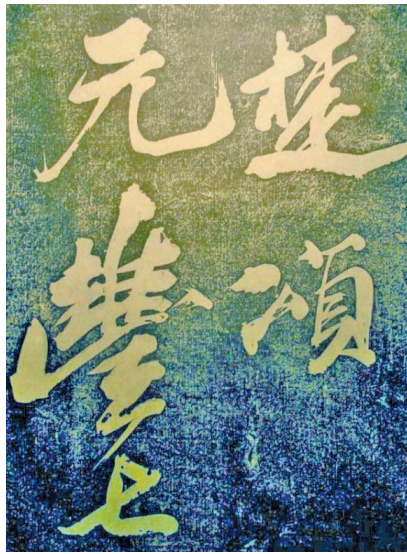 楚頌
元豐七